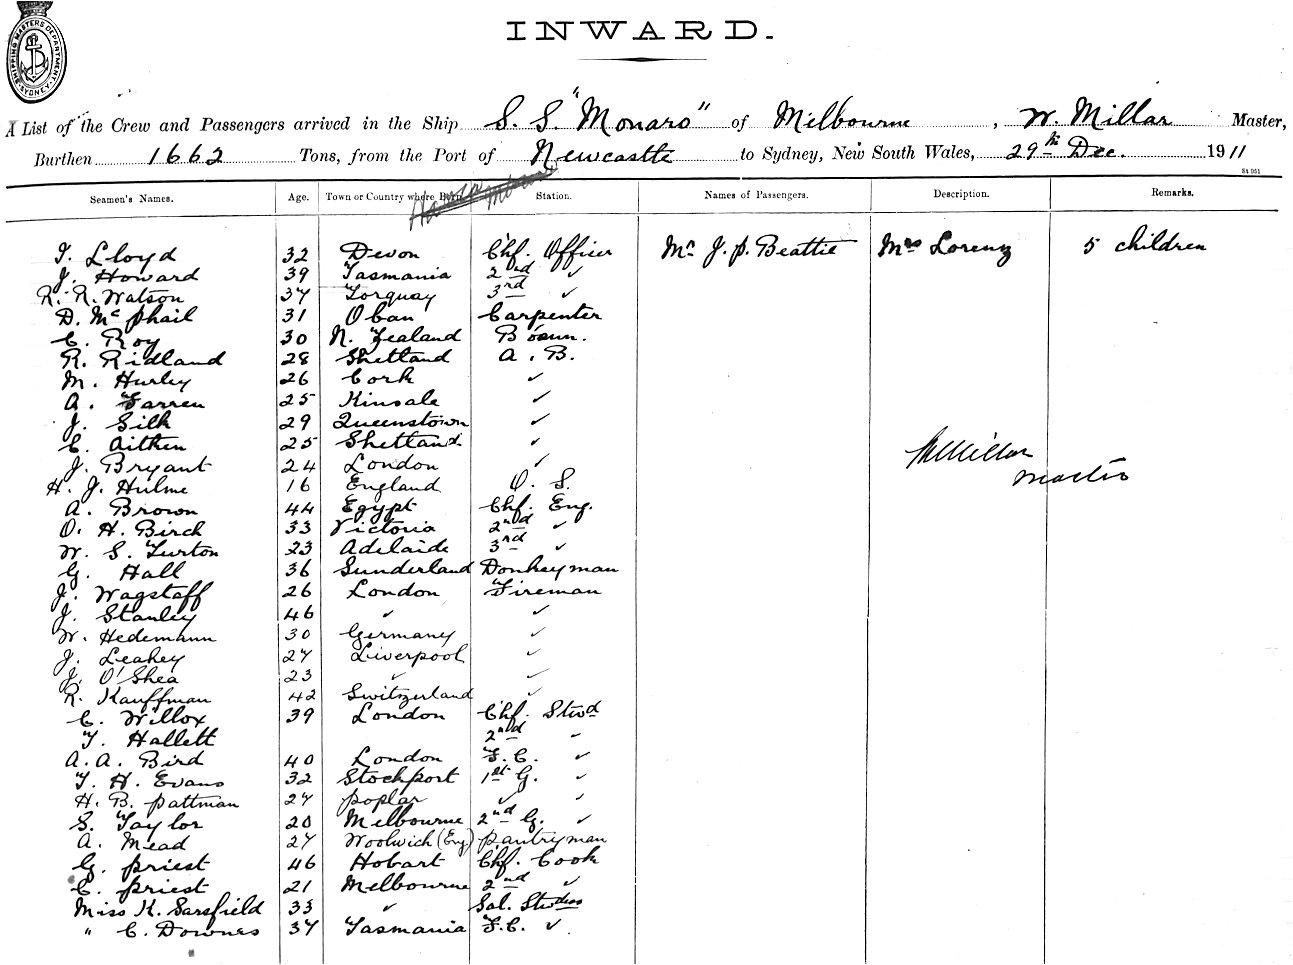 SHIPPING MASTERS DEPARTMENT SYDNEY
INWARD.
A List of the Crew and Passengers arrived in the Ship S. S. "Monaro" of Melbourne, W. Millar Master,
Burthen 1662 Tons, from the Port of Newcastle to Sydney, New South Wales, 29th Dec. 1911
St 951
Seamen's Names. Age. Town or Country where Born Station. Names of Passengers. Description. Remarks.
T. Lloyd 32 Devon Chf. Officer Mr J. P. Beattie Mrs Lorenz 5 children
J. Howard 39 Tasmania 2nd ✓
R. R. Watson 37 Torquay 3rd ✓
D. McPhail 31 Oban Carpenter
C. Roy 30 N. Zealand Bosun.
R. Ridland 28 Shetland A. B.
M. Hurley 26 Cork ✓
A. Farren 25 Kinsale ✓
J. Silk 29 Queenstown ✓
C. Aitken 25 Shetland ✓
J. Bryant 24 London ✓ W Millar
H. J. Hulme 16 England O. S. Master
A. Brown 44 Egypt Chf. Eng.
O. H. Birch 33 Victoria 2nd ✓
W. S. Turton 23 Adelaide 3rd ✓
G. Hall 36 Sunderland Donkeyman
J. Wagstaff 26 London Fireman
J. Stanley 46 ✓ ✓
W. Hedemann 30 Germany ✓
J. Leahey 27 Liverpool ✓
J. O'Shea 23 ✓ ✓
R. Kauffman 42 Switzerland ✓
C. Willox 39 London Chf. Stwd
T. Hallett 2nd ✓
A. A. Bird 40 London F. C. ✓
T. H. Evans 32 Stockport 1st G. ✓
H. B. Pattman 27 Poplar ✓ ✓
S. Taylor 20 Melbourne 2nd G. ✓
A. Mead 27 Woolwich (Eng) Pantryman
G. Priest 46 Hobart Chf. Cook
C. Priest 21 Melbourne 2nd ✓
Miss K. Sarsfield 33 ✓ Sal. Stwdess
" C. Downes 37 Tasmania F.C. ✓